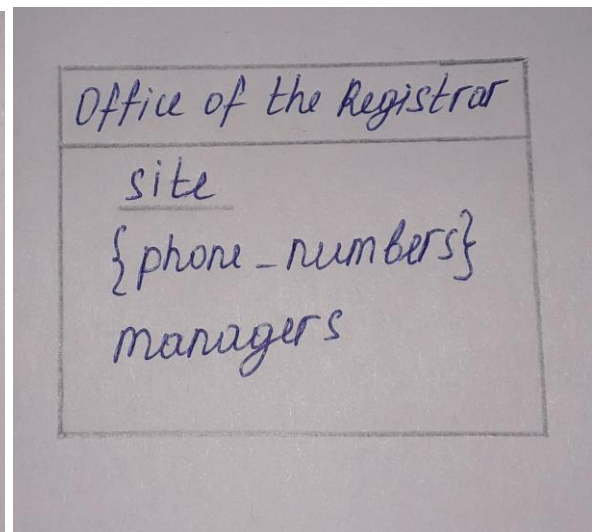 Office of the Registrar
site
{phone_numbers}
managers